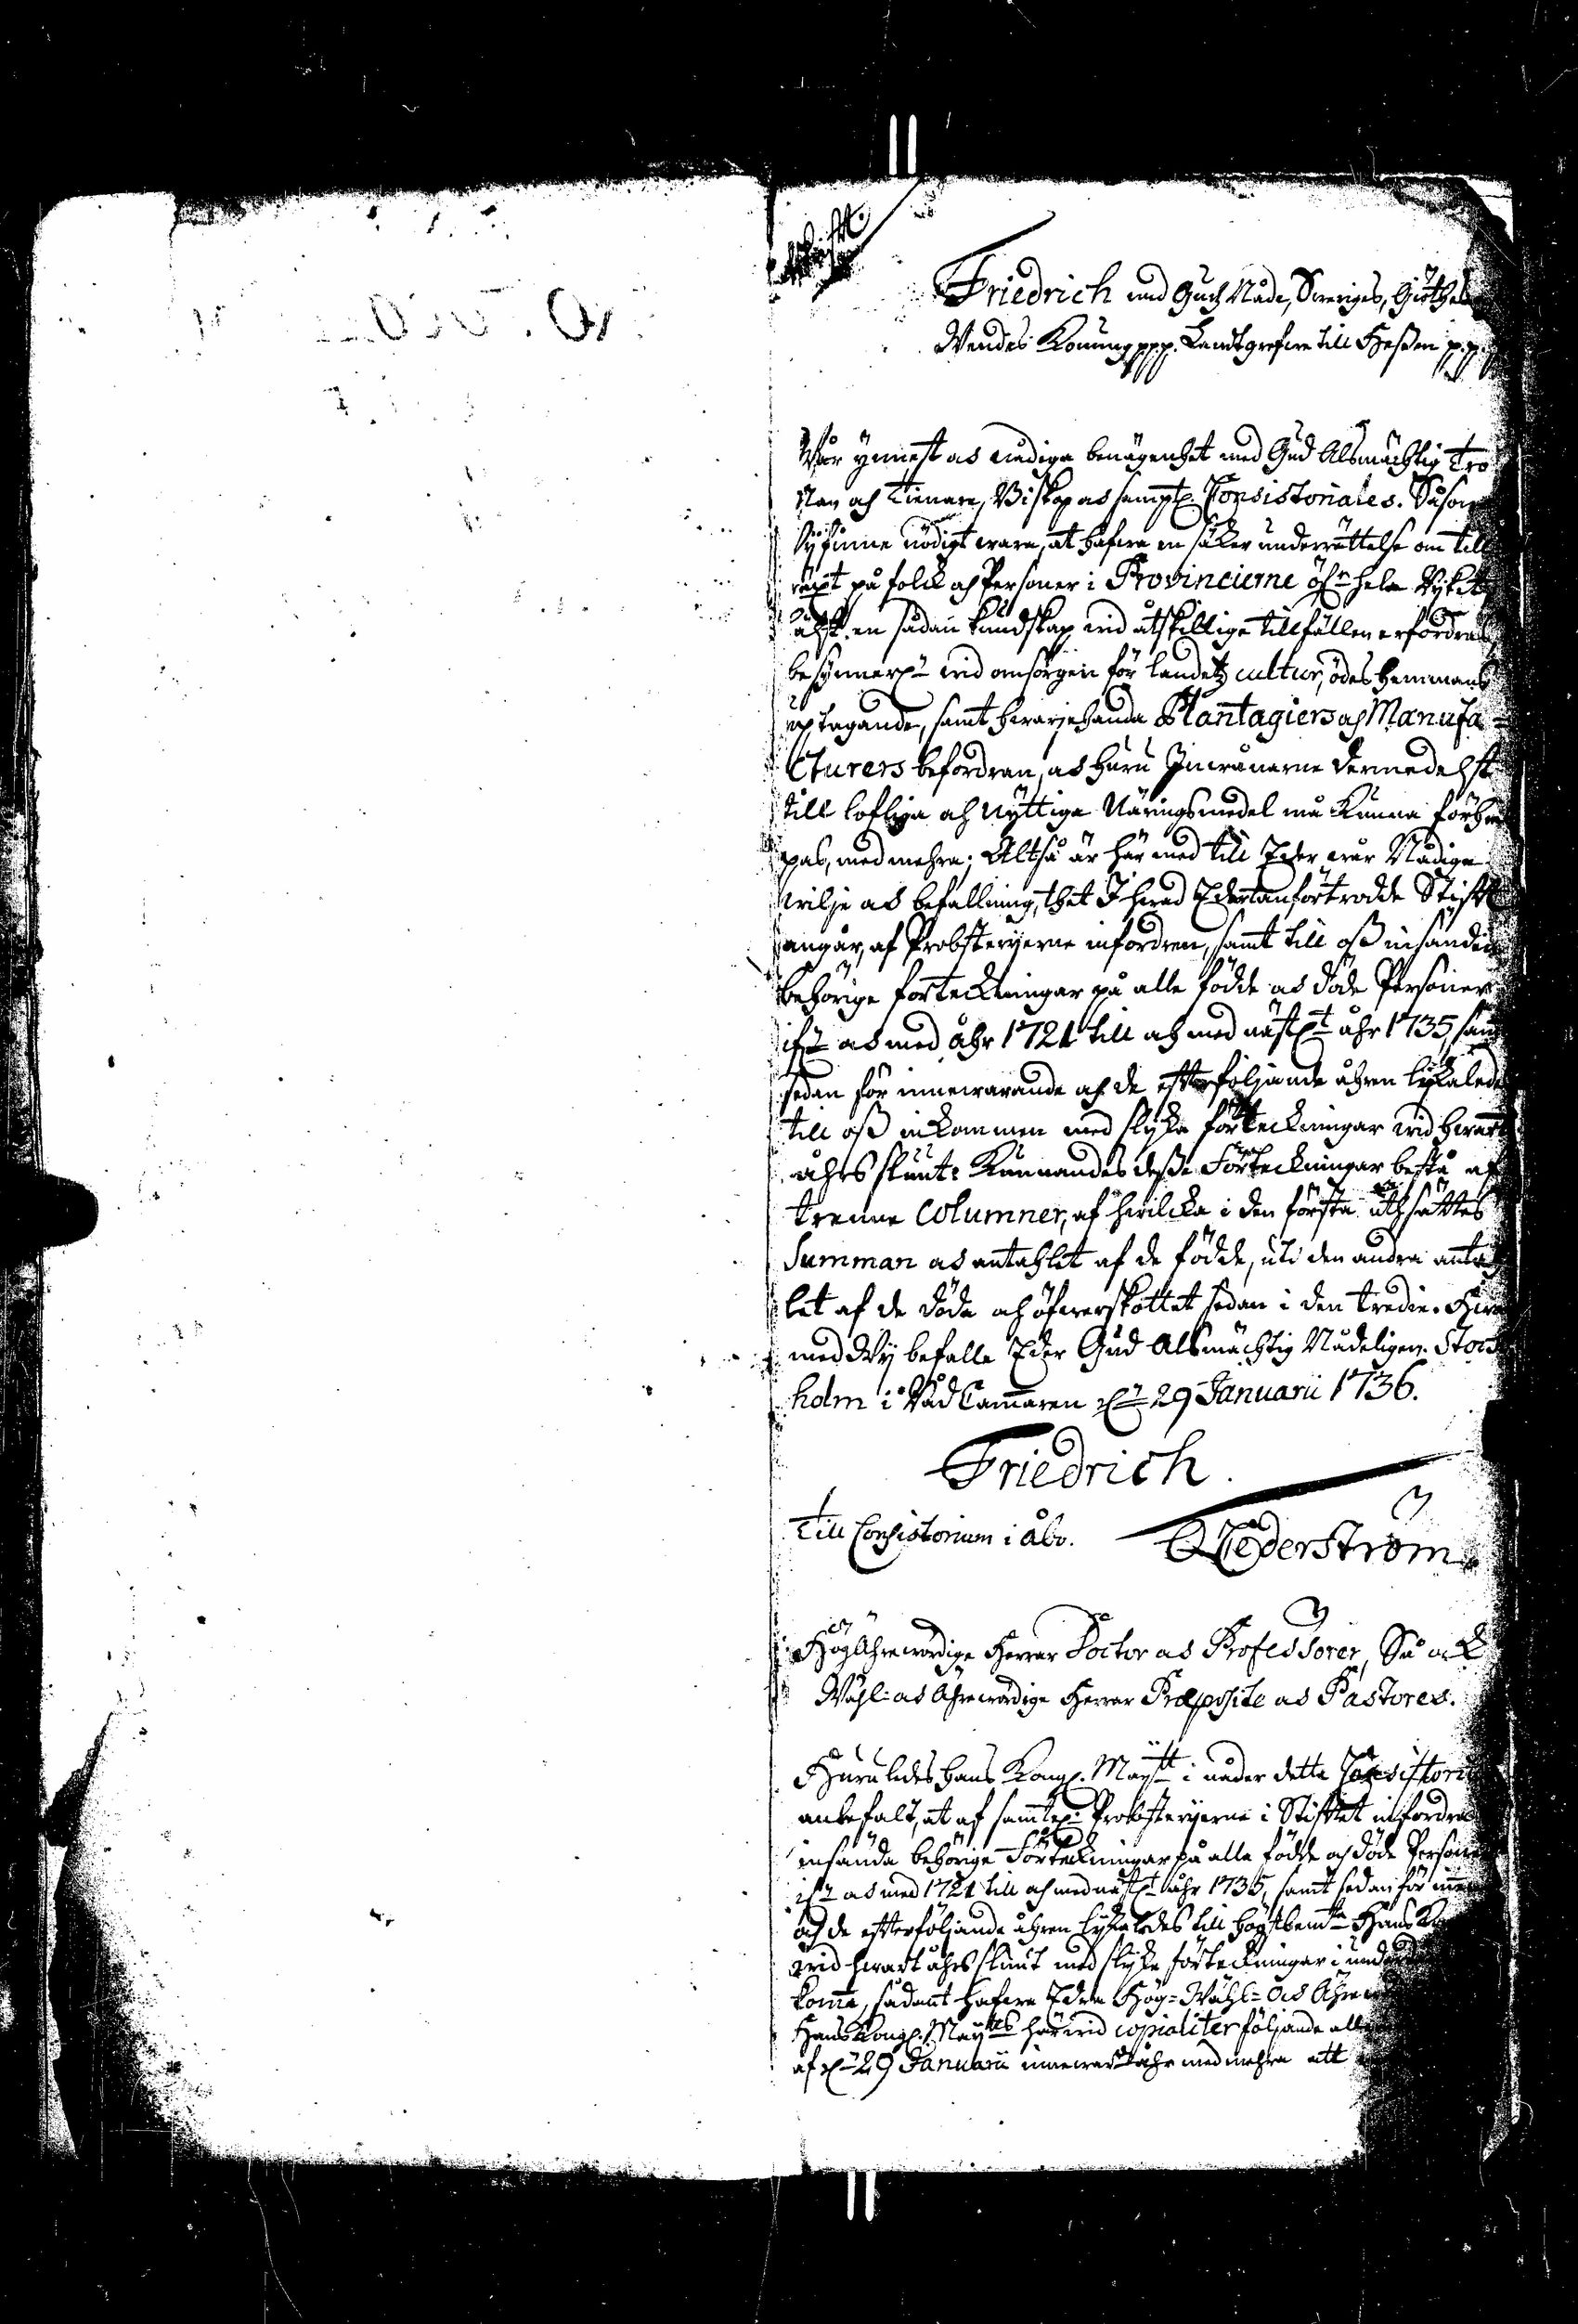 Friedrich med Gudz Nåde, Sweriges, Giöthes
Wendes Konung ppp. Landtgrefwe till Hessen p.p.
Wår ynnest och nådiga benägenhet med Gud Alsmächtig Tro
Man och Tienare, Biskop och sampt. Consistoriales. Såsom
Wij finne nödigt wara, at hafwa en säker underrättelse om till
wäxt på folck och Personer i Provincierne öfr hela Rijket
älst en sådan kundskap wid åtskillige tillfällen erfordras
besynnerl. wid omsorgen för landetz cultur, ödes hemmans
optagande, samt hwarjehanda Plantagiers och Manufa=
cturers befordran, och huru Inwånarne dermedelst
till loflige och nyttige Näringsmedel må kunna förhiel
pas, med mehra; Altså är här med till Eder wår Nådige
wilje och befallning, thet I hwad Edert anförtrodde Stift
angår, af Probsterierne infordren, samt till oss insänden
behörige förteckningar på alle födde och döde Personer
ifr. och med åhr 1721 till och med nästl. åhr 1735, samt
sedan för innewarande och de efterföljande åhren lijkaledes
till oss inkommen med slijka förteckningar wid hwart
åhrs sluut: Kunnandes desse Förteckningar bestå af
trenne Columner, af hwilcka i den första uthsättes
Summan och antahlet af de födde, uti den andra antah
let af de döde och öfwerskottet sedan i den tredie. Hwar
med Wij befalle Eder Gud Alsmächtig Nådeligen. Stock
holm i Råd Cammaren d. 29 Januarii 1736.
Friedrich.
Till Consistorium i Åbo.
Cederström
HögÄhrewördige Herrar Doctor och Professorer, Så ock
Wähl- och Ährewördige Herrar Præposite och Pastores.
Huruledes Hans Kongl. Maytt i nåder detta Consistorium
anbefalt, at af samptel. Probsterierne i Stiftet infordra
insända behörige Förteckningar på alle födde och döde Personer
ifr. och med 1721 till och med nästl. åhr 1735, samt sedan för inne
och de efterföljande åhren lijkaledes till högstbemte Hans Ko
wid hwart åhrs sluut med slijka förteckningar i und
komma, sådant hafwa Edre Hög= Wähl= och Ährew
Hans Kongl. Mayttes härwid copialiter följande alle
af d. 29 Januarii innewar. åhr med mehra att